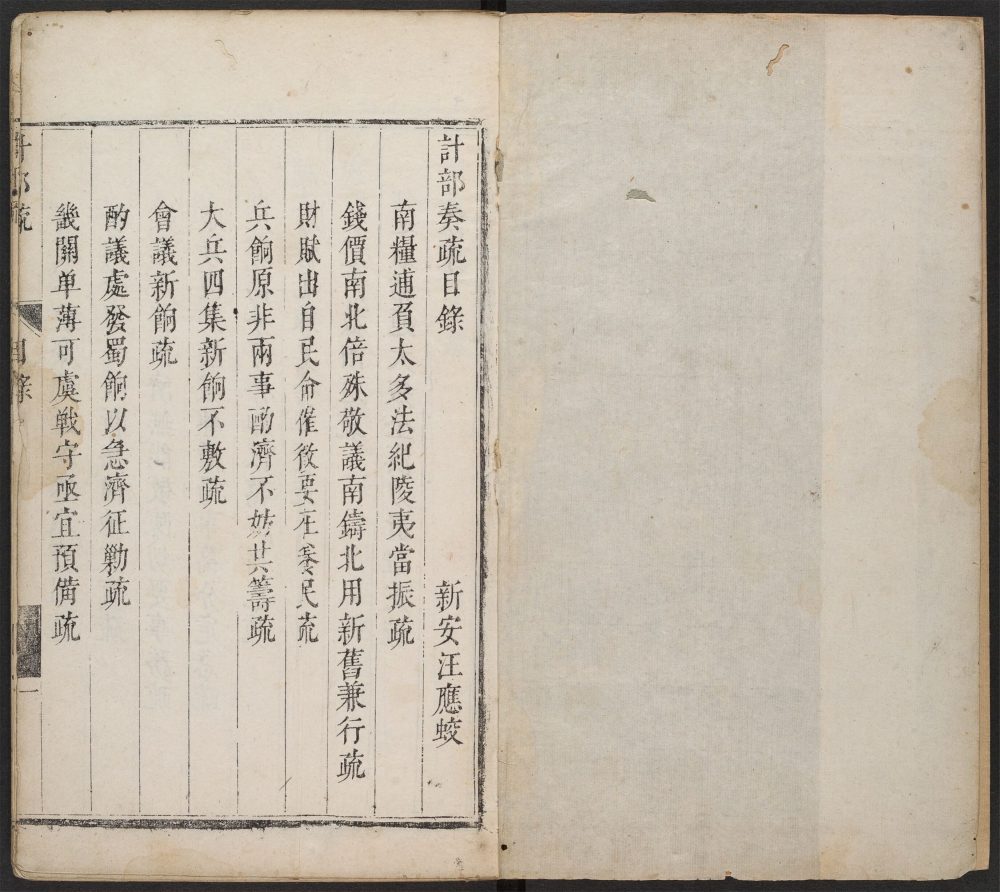 計部奏疏目錄
新安汪應蛟
南糧逋負太多法紀陵夷當振疏
錢價南北倍殊敬議南鑄北用新舊兼行疏
財賦出自民命催徵要在養民疏
兵餉原非兩事酌濟不妨共籌疏
大兵四集新餉不敷疏
會議新餉疏
酌議處發蜀餉以急濟征勦疏
畿關单薄可虞戰守亟宜預備疏
計部疏
目錄
一